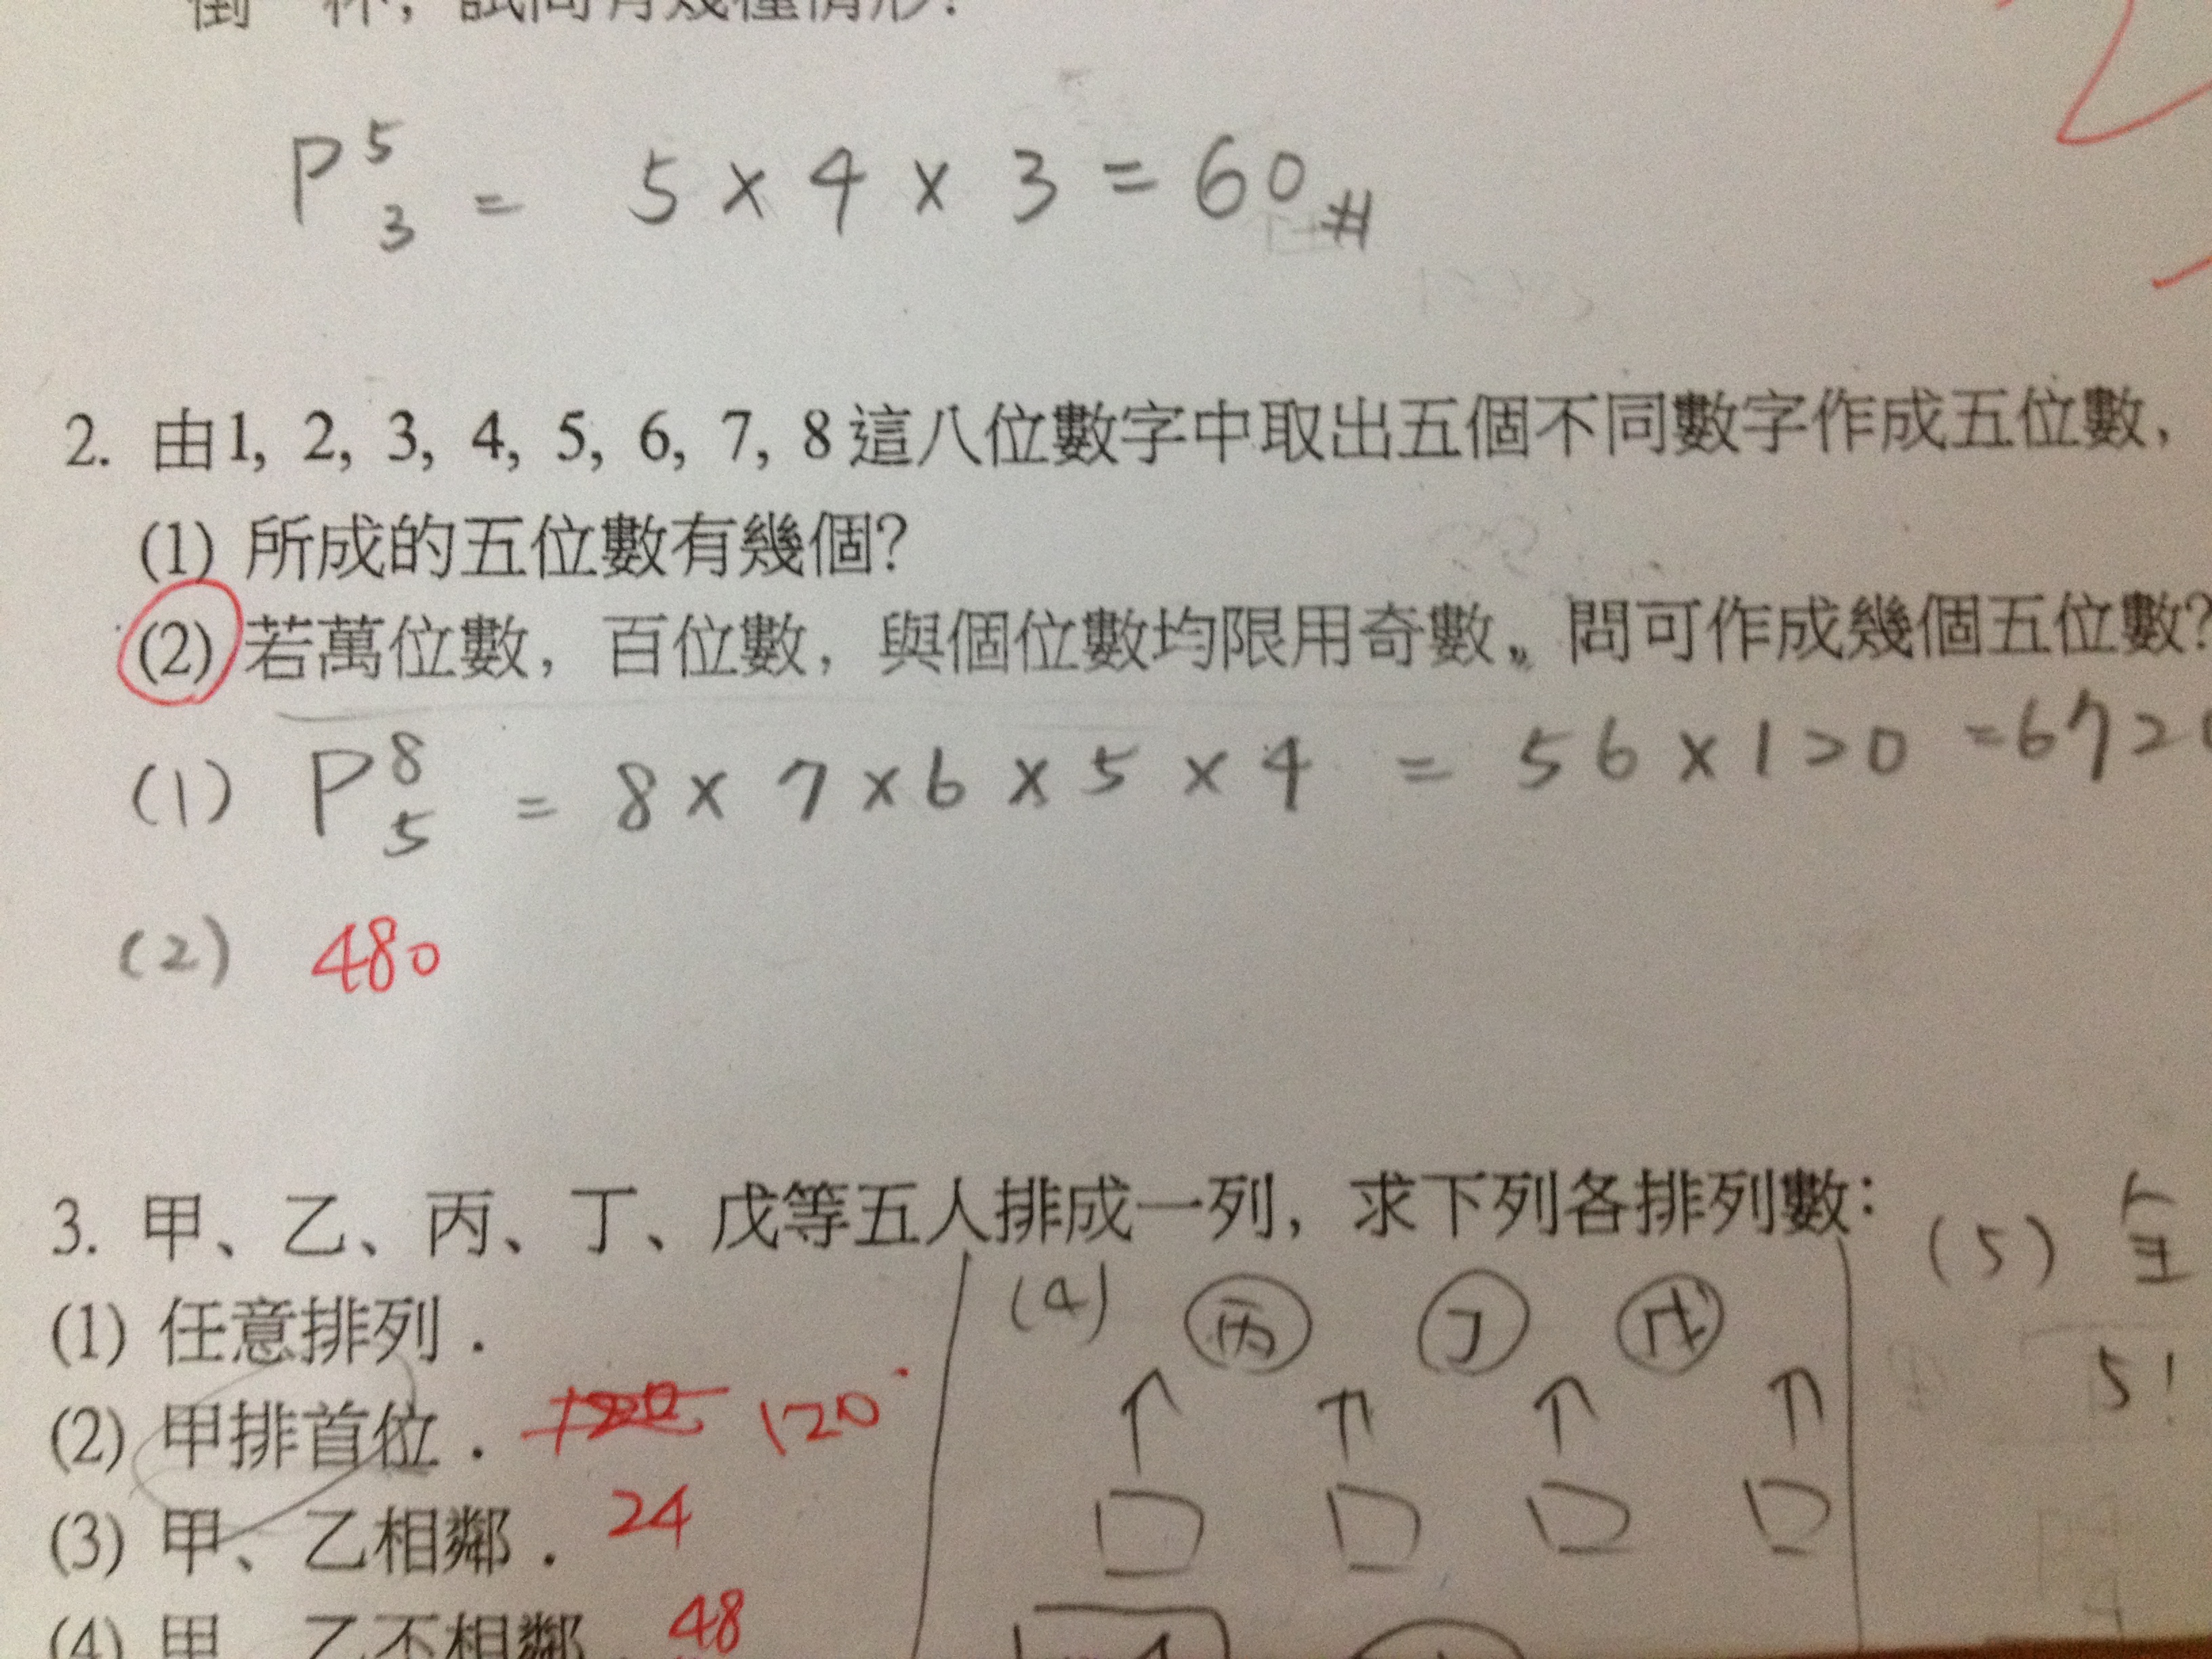 倒一杯，試問有幾種情形?
P⁵₃ = 5 × 4 × 3 = 60 #
2. 由1, 2, 3, 4, 5, 6, 7, 8這八位數字中取出五個不同數字作成五位數,
(1) 所成的五位數有幾個?
(2) 若萬位數, 百位數, 與個位數均限用奇數。問可作成幾個五位數?
(1) P⁸₅ = 8 × 7 × 6 × 5 × 4 = 56 × 120 = 6720
(2) 480
3. 甲、乙、丙、丁、戊等五人排成一列, 求下列各排列數:
(1) 任意排列.
(2) 甲排首位. 120
(3) 甲、乙相鄰. 24
(4) 甲、乙不相鄰. 48
(4) 丙 丁 戊
(5)
5!